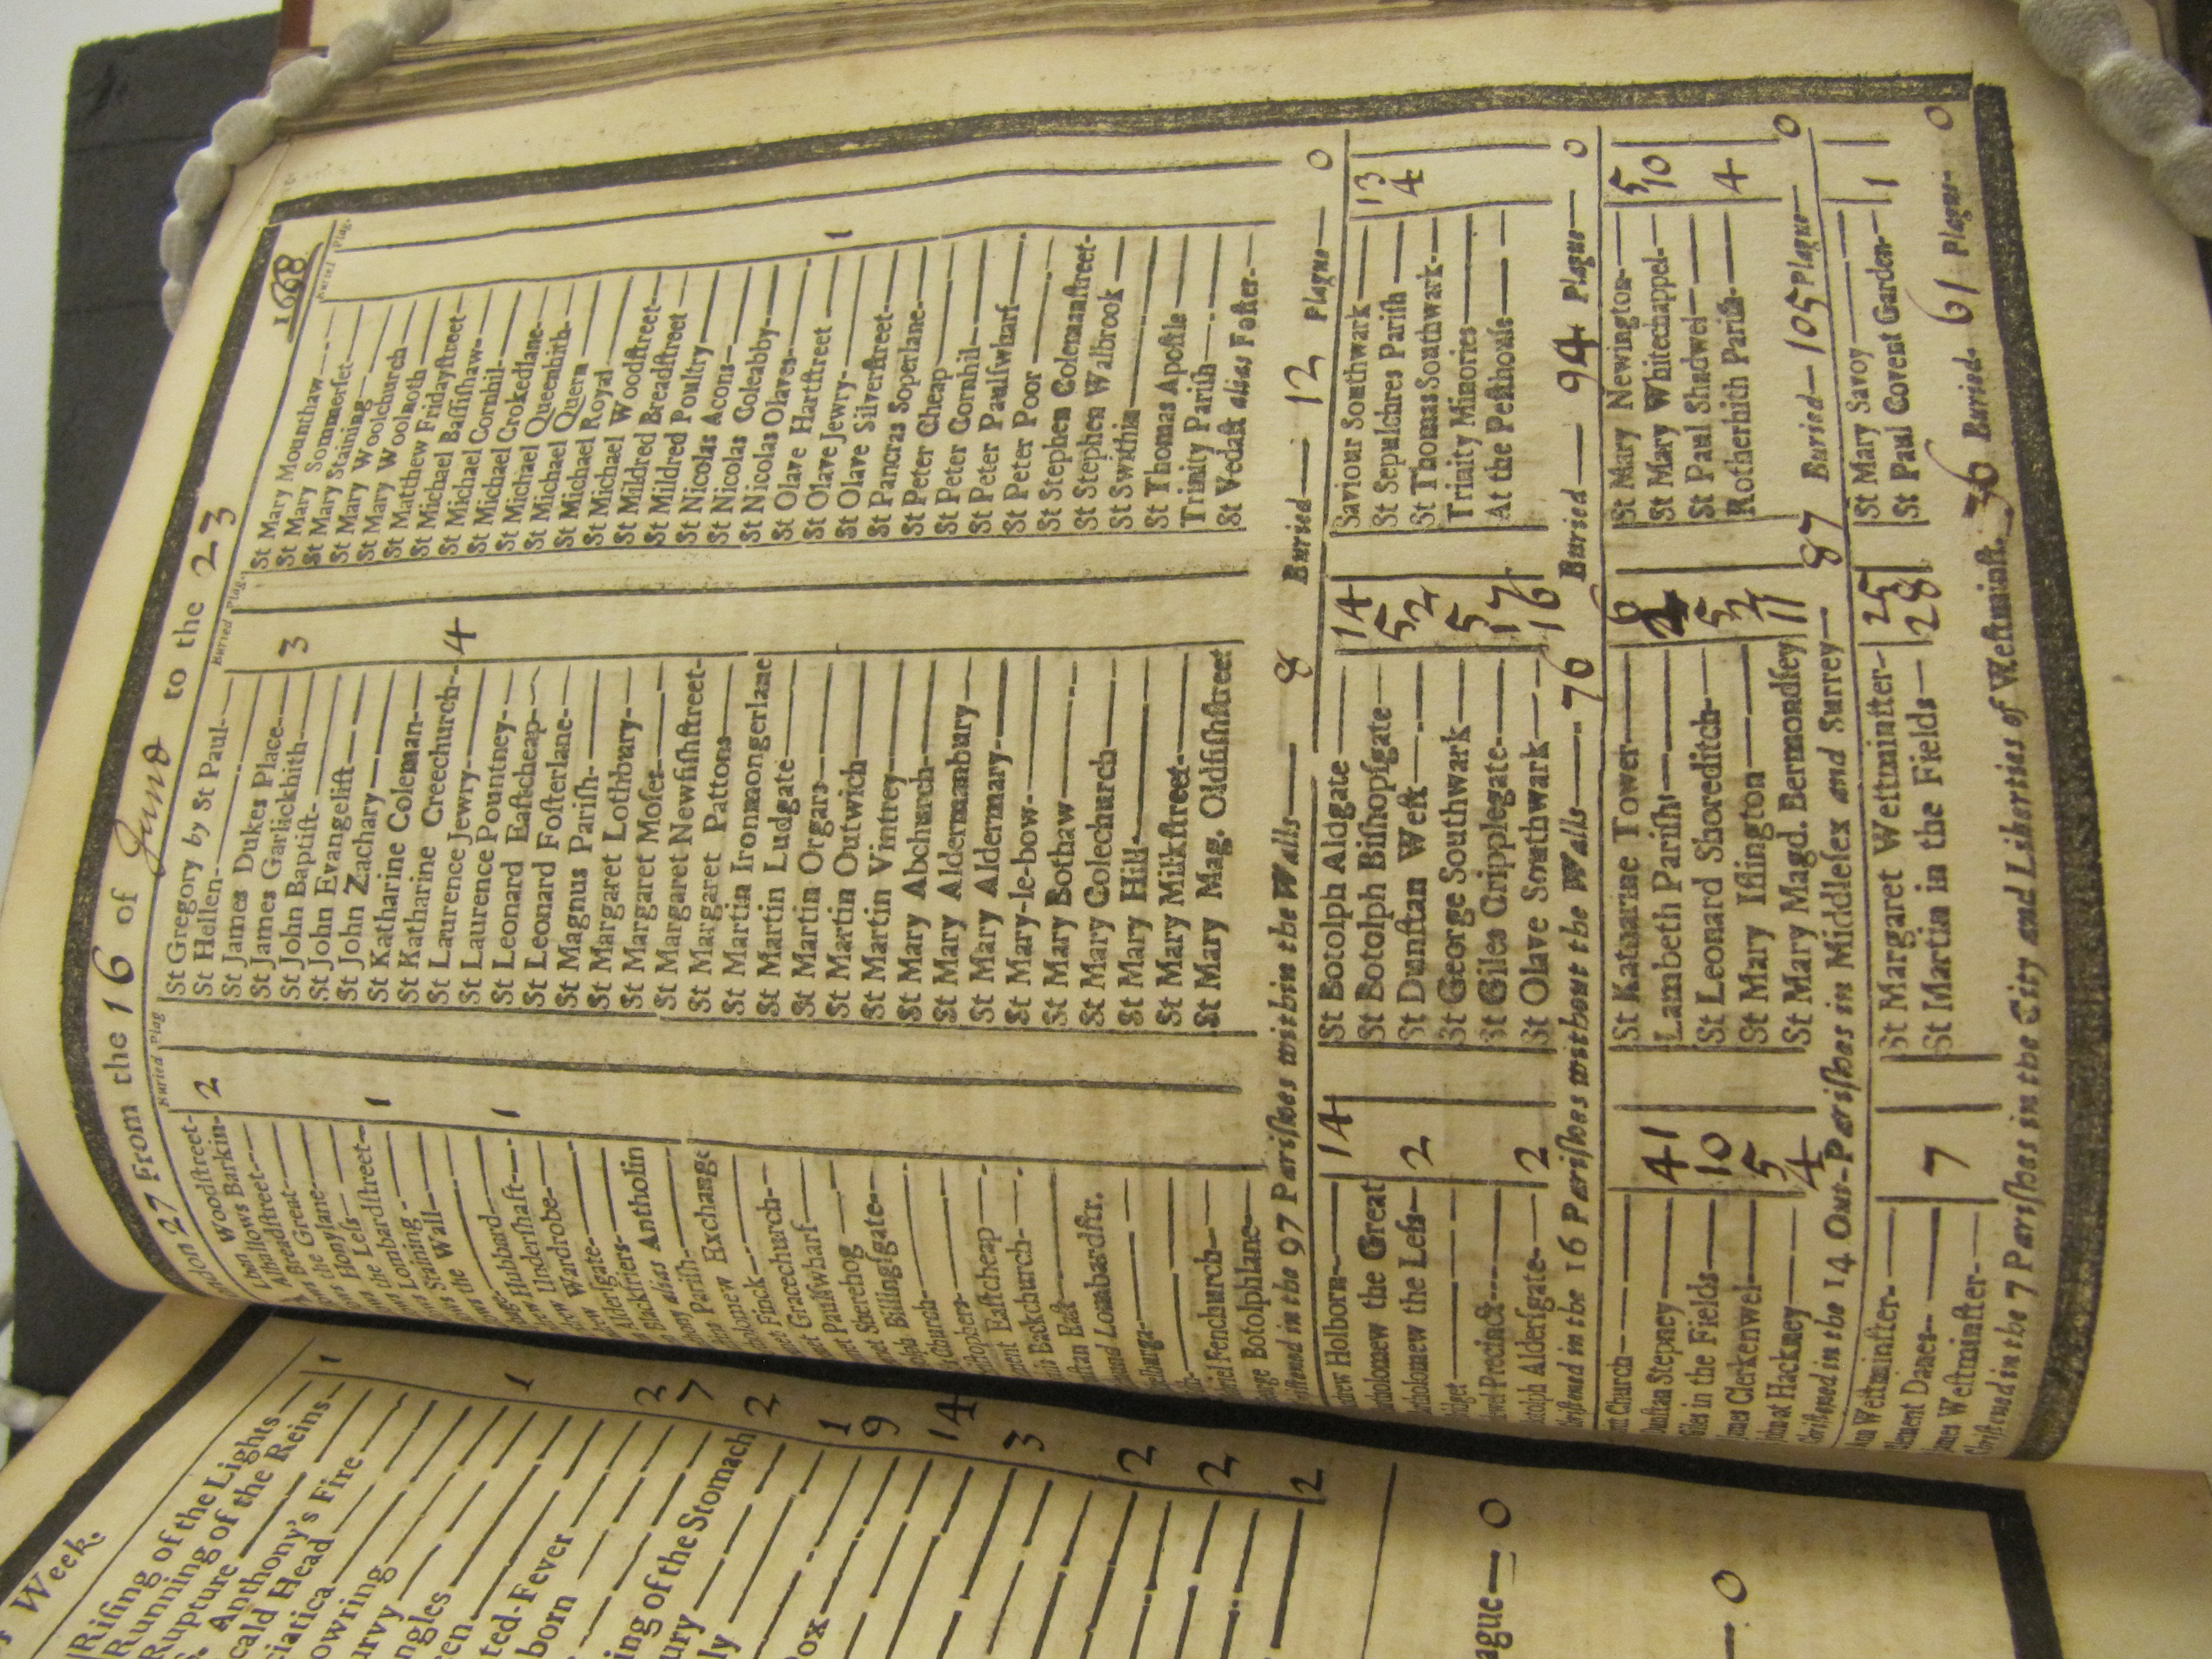 London 27 From the 16 of June to the 23 1668
Buried Plag
Woodstreet-
Allhallows Barkin- 2
Breadstreet
Great
Honylane
Less
Lombardstreet- 1
Staining
Wall
Hubbard
Undershaft 1
Wardrobe
Aldersgate
Blackfriers
alias Antholin
Parish
Exchange
Finck
Gracechurch
Paulswharf
Sherehog
Billingsgate
Church
Eastcheap
Backchurch
East
Lombardstr.
Fenchurch
Botolphlane
Buried Plag.
St Gregory by St Paul
St Hellen
St James Dukes Place 3
St James Garlickhith
St John Baptist
St John Evangelist
St John Zachary
St Katharine Coleman
St Katharine Creechurch 4
St Laurence Jewry
St Laurence Pountney
St Leonard Eastcheap
St Leonard Fosterlane
St Magnus Parish
St Margaret Lothbury
St Margaret Moses
St Margaret Newfishstreet
St Margaret Pattons
St Martin Ironmongerlane
St Martin Ludgate
St Martin Orgars
St Martin Outwich
St Martin Vintrey
St Mary Abchurch
St Mary Aldermanbury
St Mary Aldermary
St Mary-le-bow
St Mary Bothaw
St Mary Colechurch
St Mary Hill
St Mary Milkstreet
St Mary Mag. Oldfishstreet
Buried Plag.
St Mary Mounthaw
St Mary Sommerset
St Mary Staining
St Mary Woolchurch
St Mary Woolnoth
St Matthew Fridaystreet
St Michael Bassishaw
St Michael Cornhil
St Michael Crokedlane
St Michael Queenhith
St Michael Quern
St Michael Royal
St Michael Woodstreet
St Mildred Breadstreet
St Mildred Poultry
St Nicolas Acons
St Nicolas Coleabby
St Nicolas Olaves
St Olave Hartstreet 1
St Olave Jewry
St Olave Silverstreet
St Pancras Soperlane
St Peter Cheap
St Peter Cornhil
St Peter Paulswharf
St Peter Poor
St Stephen Colemanstreet
St Stephen Walbrook
St Swithin
St Thomas Apostle
Trinity Parish
St Vedast alias Foster
in the 97 Parishes within the Walls 8 Buried 12 Plague 0
Holborn 14
the Great
the Less 2
Precinct
Aldersgate 2
St Botolph Aldgate 14
St Botolph Bishopsgate 5
St Dunstan West 2
St George Southwark 5
St Giles Cripplegate 17
St Olave Southwark 16
Saviour Southwark 13
St Sepulchres Parish 4
St Thomas Southwark
Trinity Minories
At the Pesthouse
in the 16 Parishes without the Walls 76 Buried 94 Plague 0
Church
Stepney 41
in the Fields 10
Clerkenwel 5
at Hackney 4
St Katharine Tower 6
Lambeth Parish
St Leonard Shoreditch 5
St Mary Islington 2
St Mary Magd. Bermondsey 11
St Mary Newington 5
St Mary Whitechappel 10
St Paul Shadwel
Rotherhith Parish 4
in the 14 Out-Parishes in Middlesex and Surrey 87 Buried 105 Plague 0
Westminster
Danes 7
Westminster
St Margaret Westminster 25
St Martin in the Fields 28
St Mary Savoy
St Paul Covent Garden 1
in the 7 Parishes in the City and Liberties of Westminst. 36 Buried 61 Plague 0
Week.
Rising of the Lights 1
Running of the Reins
Rupture
Anthony's Fire
Head
1
3
7
Fever 2
of the Stomach
1
9
14
3
2
2
2
0
0